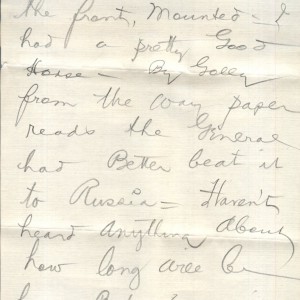 the front, Mounted - I
had a pretty Good
Horse - By Golly
from the way paper
reads the General
had Better beat it
to Russia - Haven't
heard Anything About
how long will be